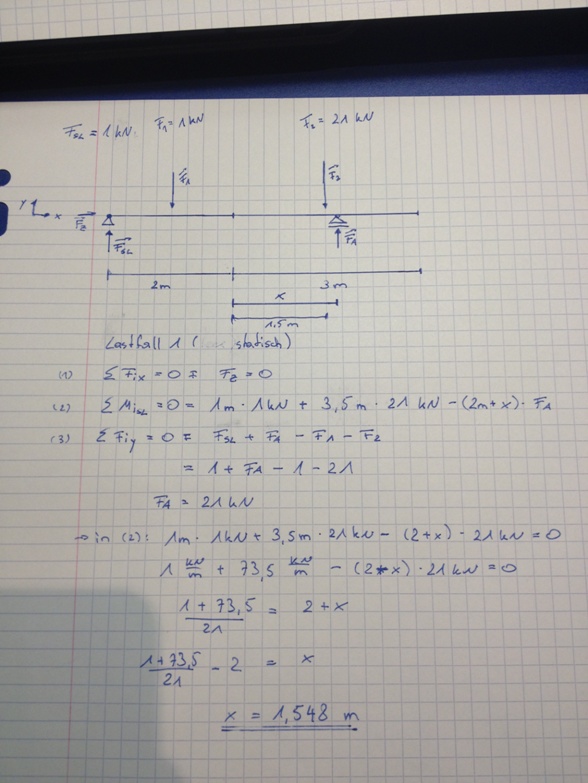 F_SL = 1 kN. F_1 = 1 kN F_2 = 21 kN
F_1 F_2
y x F_Z
F_SL F_A
2m 3m
x
1,5m
Lastfall 1 ( statisch)
(1) Σ F_ix = 0 = F_Z = 0
(2) Σ M_iSL = 0 = 1m · 1kN + 3,5m · 21 kN - (2m + x) · F_A
(3) Σ F_iy = 0 = F_SL + F_A - F_1 - F_2
= 1 + F_A - 1 - 21
F_A = 21 kN
→ in (2): 1m · 1kN + 3,5m · 21kN - (2+x) · 21kN = 0
1 kN/m + 73,5 kN/m - (2+x) · 21kN = 0
(1 + 73,5)/21 = 2 + x
(1+73,5)/21 - 2 = x
x = 1,548 m